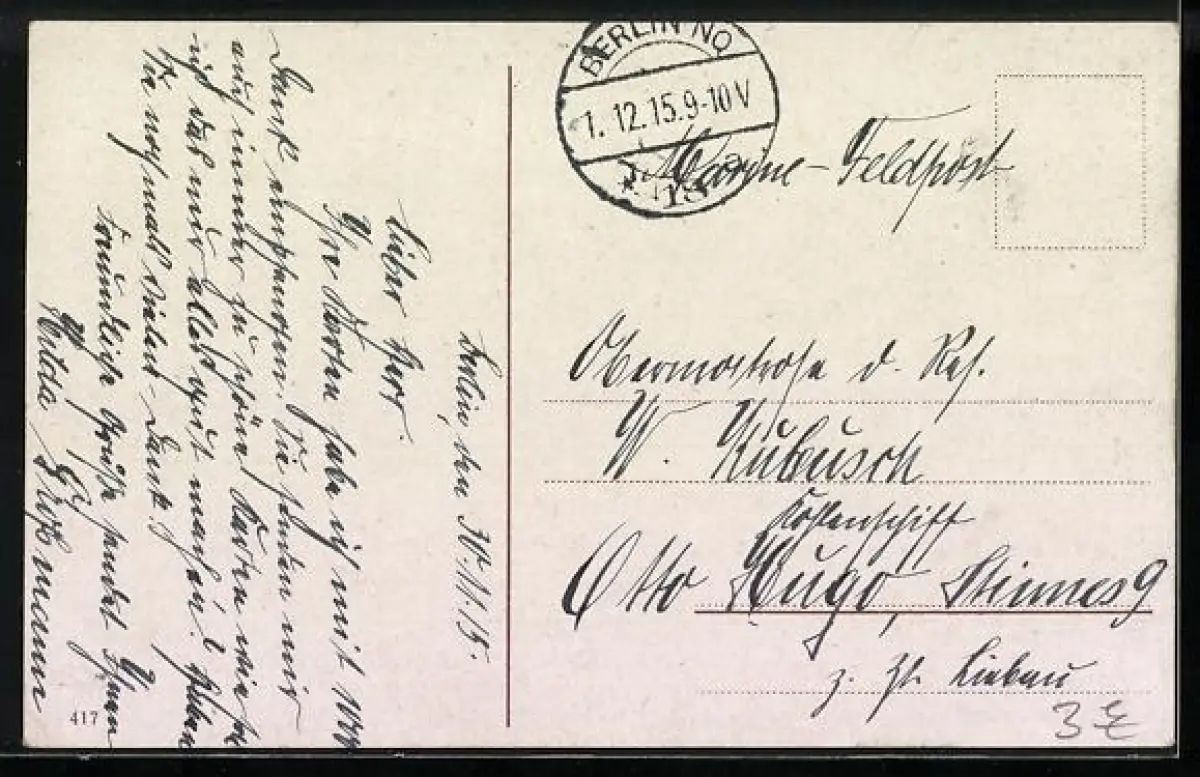 BERLIN NO
1.12.15.9-10V
* 18
Marine-Feldpost
Obermatrose d. Res.
W. Kubusch
Kohlenschiff
Otto Hugo, Stinnes 9
z. Zt. Liebau
Berlin, den 30.11.15.
Lieber Herr.
Ihre Karten habe ich mit
Dank empfangen. Sie senden mir
auch immer so schöne Karten wie
ich das nur alles gut machen!
Sie nochmals vielen Dank!
Freundliche Grüße sendet Ihnen
Hulda
417
3 £